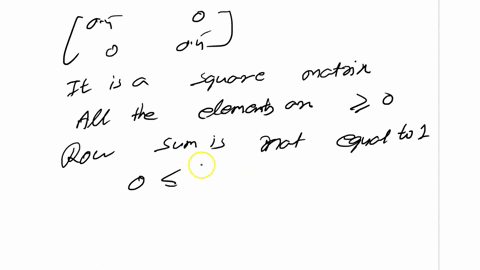 [0.5 0
0 0.5]
It is a square matrix
All the elements are ≥ 0
Row sum is not equal to 1
0 ≤